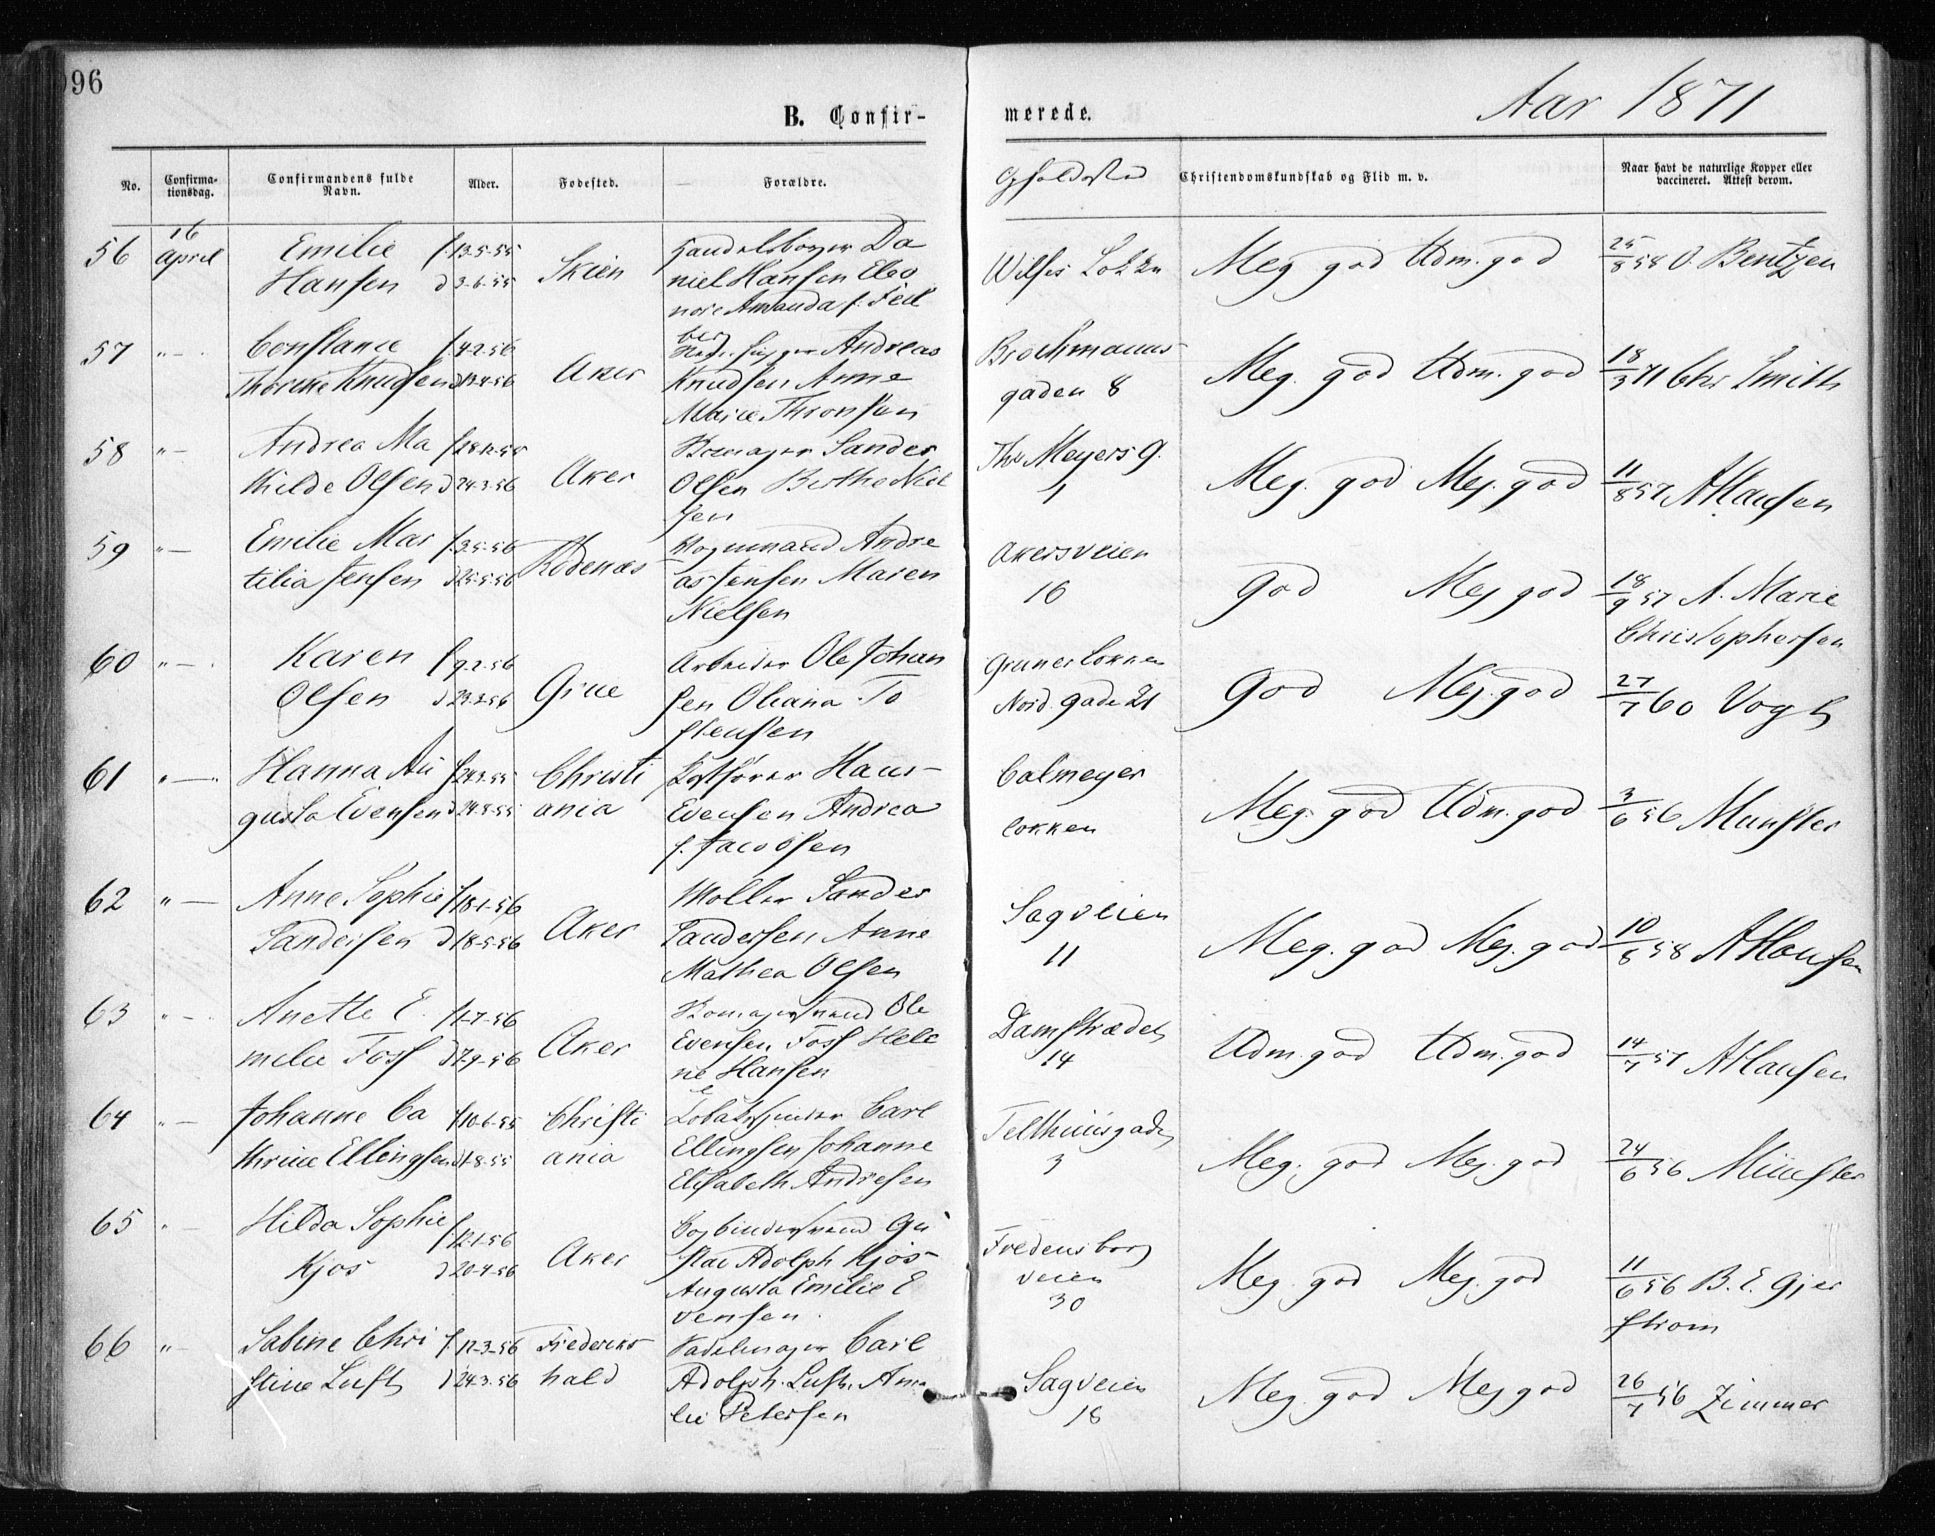 96
B. Confir-
merede.
Aar 1871
No.
Confirma-
tionsdag.
Confirmandens fulde
Navn.
Alder.
Fødested.
Forældre.
Opholdssted
Christendomskundskab og Flid m. v.
Naar havt de naturlige Kopper eller
vaccineret. Attest derom.
56 16 April Emilie f. 13-5-55
Hansen d 3-6-55 Skien
Da
niel Hansen Eleo
nore Amanda f. Feil
berg
Lokken
Meg. god Udm. god 25/8 58 O. Bentzen
57 "— Constance f. 4-2-56
Thorine Knudsen d 13-4-56 Aker
Andreas
Knudsen Anne
Marie Thronsen
Brochmanns
gaden 8
Meg. god Udm. god 18/3 71 Chr Smith
58 "— Andrea Ma
thilde Olsen d 24-3-56 Aker
Sander
Olsen Berthe Niel
sen
Ths Meyers g.
1
Meg. god Meg. god 11/8 57 A Hansen
59 "— Emilie Mar f. 3-5-56
tilia Jensen d 25-5-56 Rødenæs
Vognmand Andre
as Jensen Maren
Nielsen
Akersveien
16
God Meg god 18/9 57 A. Marie
Christophersen
60 "— Karen f. 9-2-56
Olsen d 23-3-56 Grue
Arbeider Ole Johan
sen Oliana To
stensen
Gruner Lokken
Nord. gade 21
God Meg. god 27/7 60 Vogt
61 "— Hanna Au f. 24-3-55
gusta Evensen d 24-8-55 Christi
ania
Hans
Evensen Andrea
f. Jacobsen
Calmeyer
lokken
Meg. god Udm. god 3/6 56 Munster
62 "— Anne Sophie f. 18-1-56
Sandersen d 18-5-56 Aker
Moller Sander
Sandersen Anne
Mathea Olsen
Sagveien
11
Meg. god Meg. god 10/8 58 A Hansen
63 "— Anette E. f. 1-7-56
melie Foss d 7-9-56 Aker
Ole
Evensen Foss Hele
ne Hansen
Damstrædet
14
Udm. god Udm. god 14/7 57 A Hansen
64 "— Johanne Ca f. 10-6-55
thrine Ellingsen d 1-8-55 Christi
ania
Carl
Ellingsen Johanne
Elisabeth Andresen
Telthuusgaden
3
Meg. god Meg. god 24/6 56 Münster
65 "— Hilda Sophie f. 12-1-56
Kjos d 20-4-56 Aker
Bogbindersvend Gu
stav Adolph Kjos
Augusta Emilie E
vensen.
Fredensborg
veien
30
Meg. god Meg. god 11/6 56 B. E. Gjer
strom
66 "— Sabine Chri f. 12-3-56
stine Luft d 24-3-56 Frederiks
hald
Sadelmager Carl
Adolph Luft, Ama
lie Petersen
Sagveien
18
Meg. god Meg god 26/7 56 Zimmer